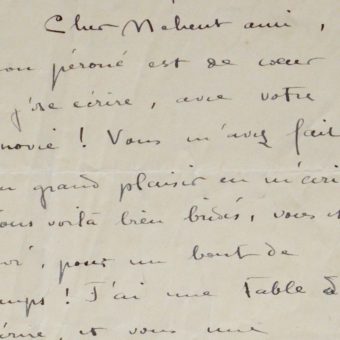 Cher Mehent ami,
on péroné est de cœur
j'ose écrire, avec votre
novié ! Vous m'avez fait
n grand plaisir en m'écri
ous voilà bien bridés, vous e
, pour un bout de
mps ! J'ai une Table d
crire, et vous une